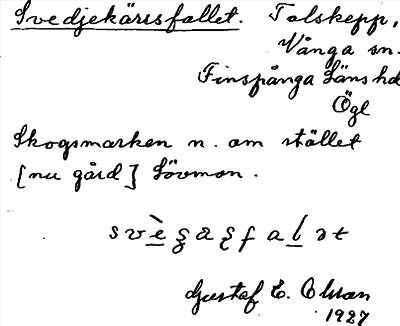 Svedjekärrsfallet. Talskepp,
Vånga sn.
Finspånga Läns hd
Ögl
Skogsmarken n. om stället
[nu gård] Lövmon.
Gustaf E. Olsson
1927